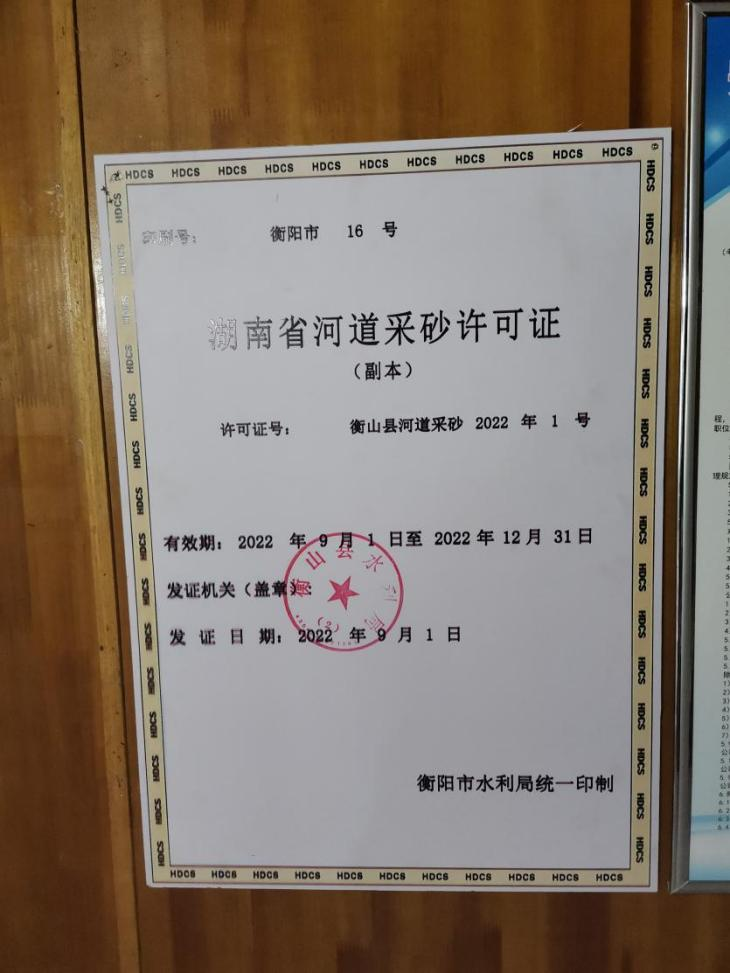 HDCS HDCS HDCS HDCS HDCS HDCS HDCS HDCS HDCS HDCS HDCS
印刷号: 衡阳市 16 号
湖南省河道采砂许可证
（副本）
许可证号: 衡山县河道采砂 2022 年 1 号
有效期: 2022 年 9 月 1 日至 2022 年 12 月 31 日
发证机关（盖章）:
衡山县水利局
(2)
发 证 日 期: 2022 年 9 月 1 日
衡阳市水利局统一印制
HDCS HDCS HDCS HDCS HDCS HDCS HDCS HDCS HDCS HDCS HDCS
程，
职位
理规